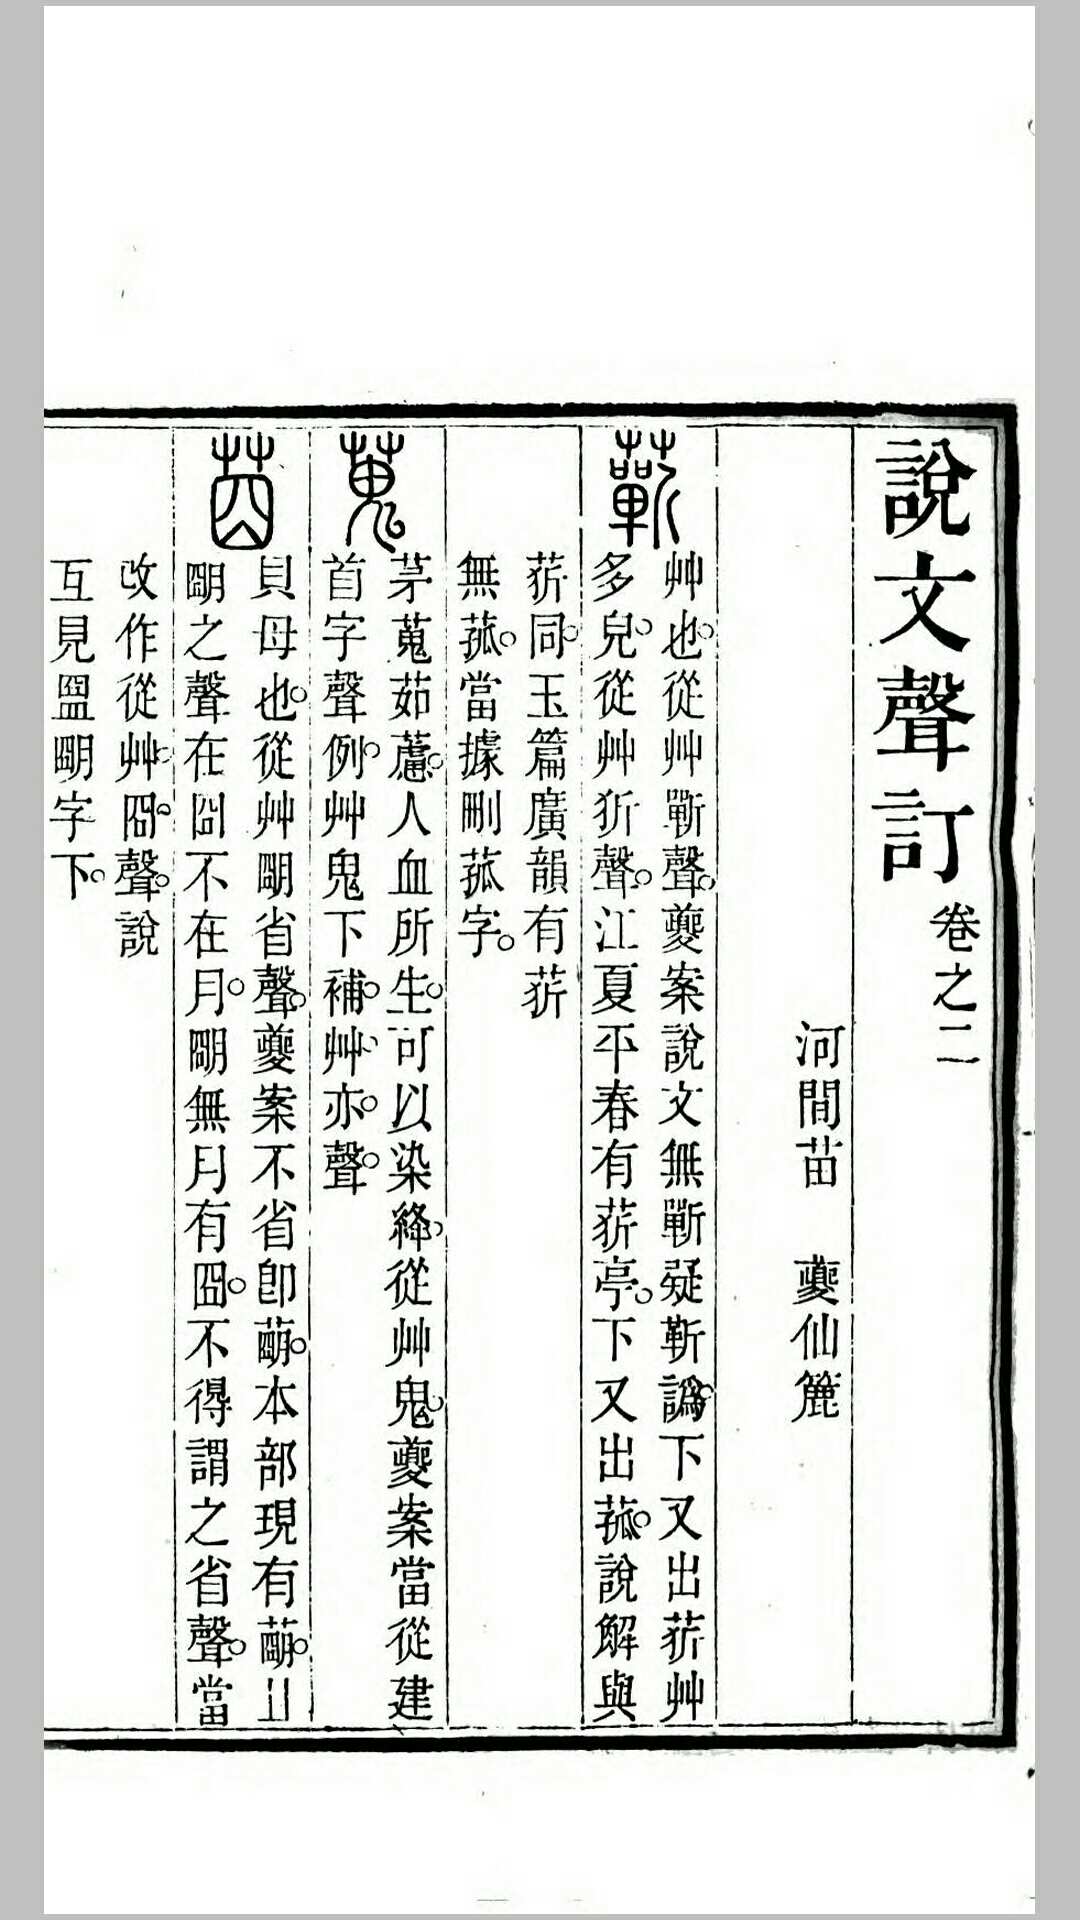 說文聲訂 卷之二
河間苗 夔仙簏
蘄
艸也從艸蘄聲夔案說文無蘄疑靳譌下又出菥艸
多皃從艸狾聲江夏平春有菥亭下又出菰說解與
菥同玉篇廣韻有菥
無菰當據刪菰字
蒐
茅蒐茹藘人血所生可以染絳從艸鬼夔案當從建
首字聲例艸鬼下補艸亦聲
䒽
貝母也從艸朙省聲夔案不省卽萌本部現有萌且
朙之聲在囧不在月朙無月有囧不得謂之省聲當
改作從艸囧聲說
互見盟朙字下